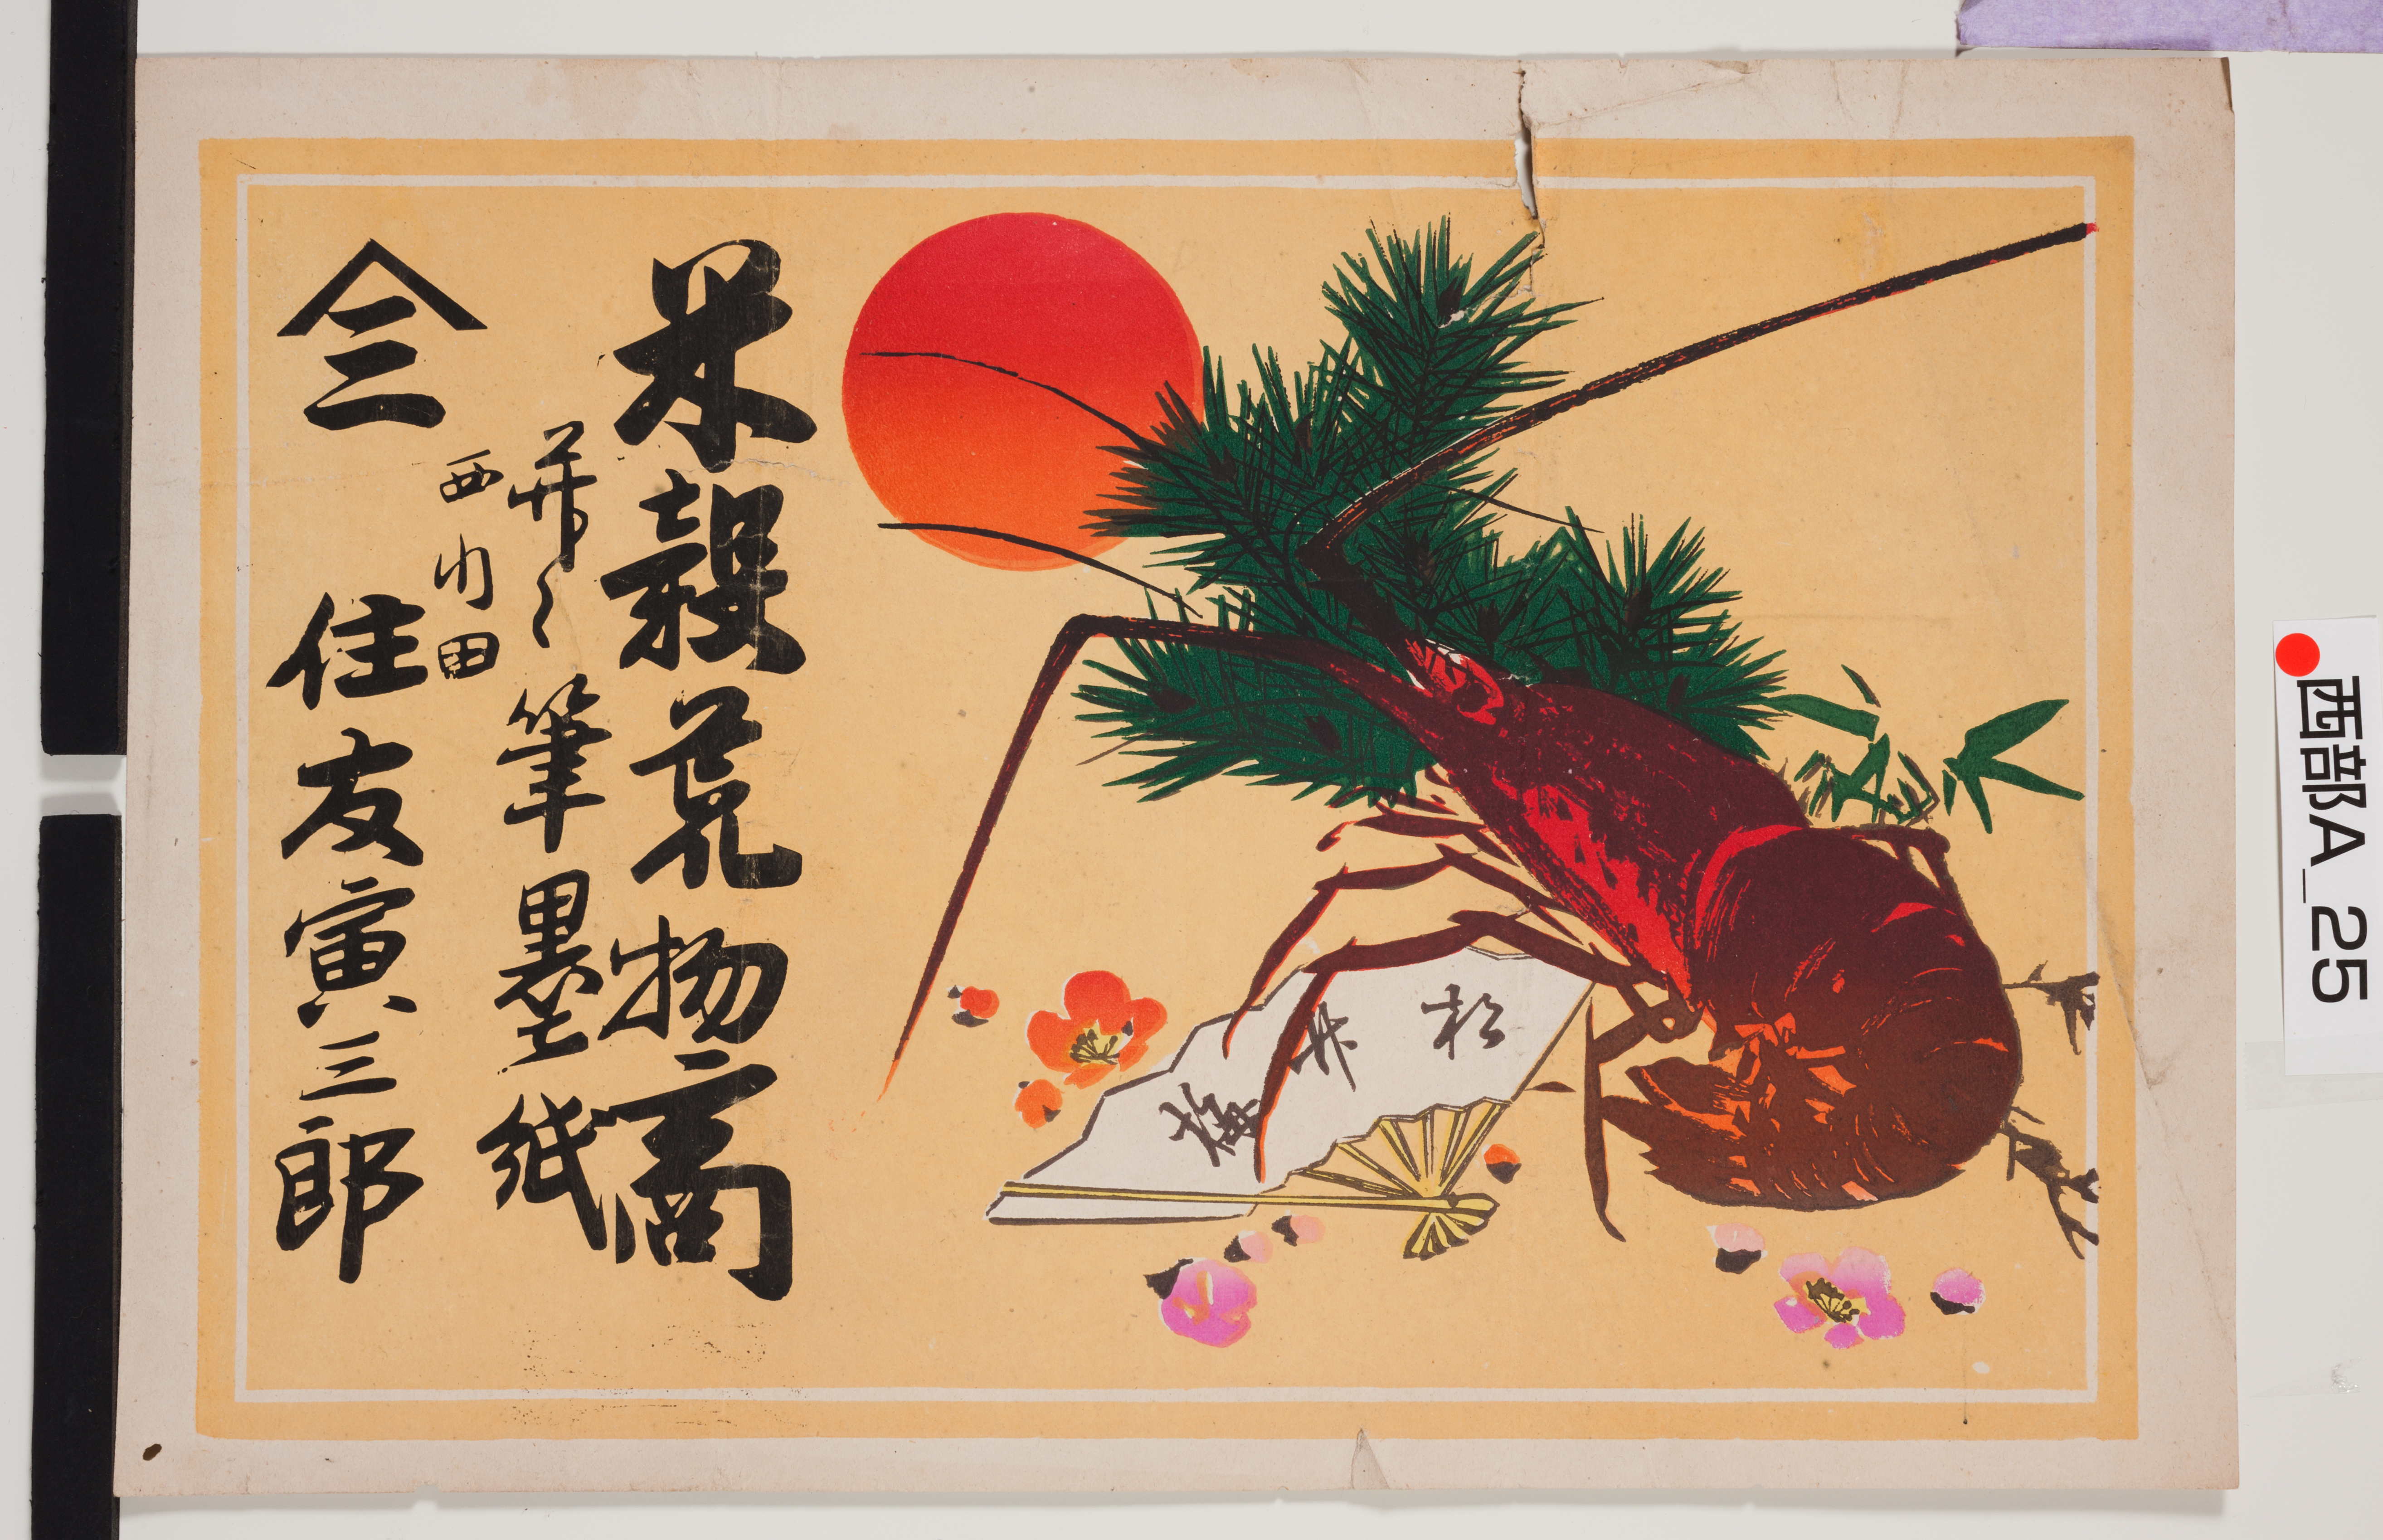 米穀荒物商
并ニ筆墨紙
西小田
仝三 住友寅三郎
松
竹
梅
西部A_25